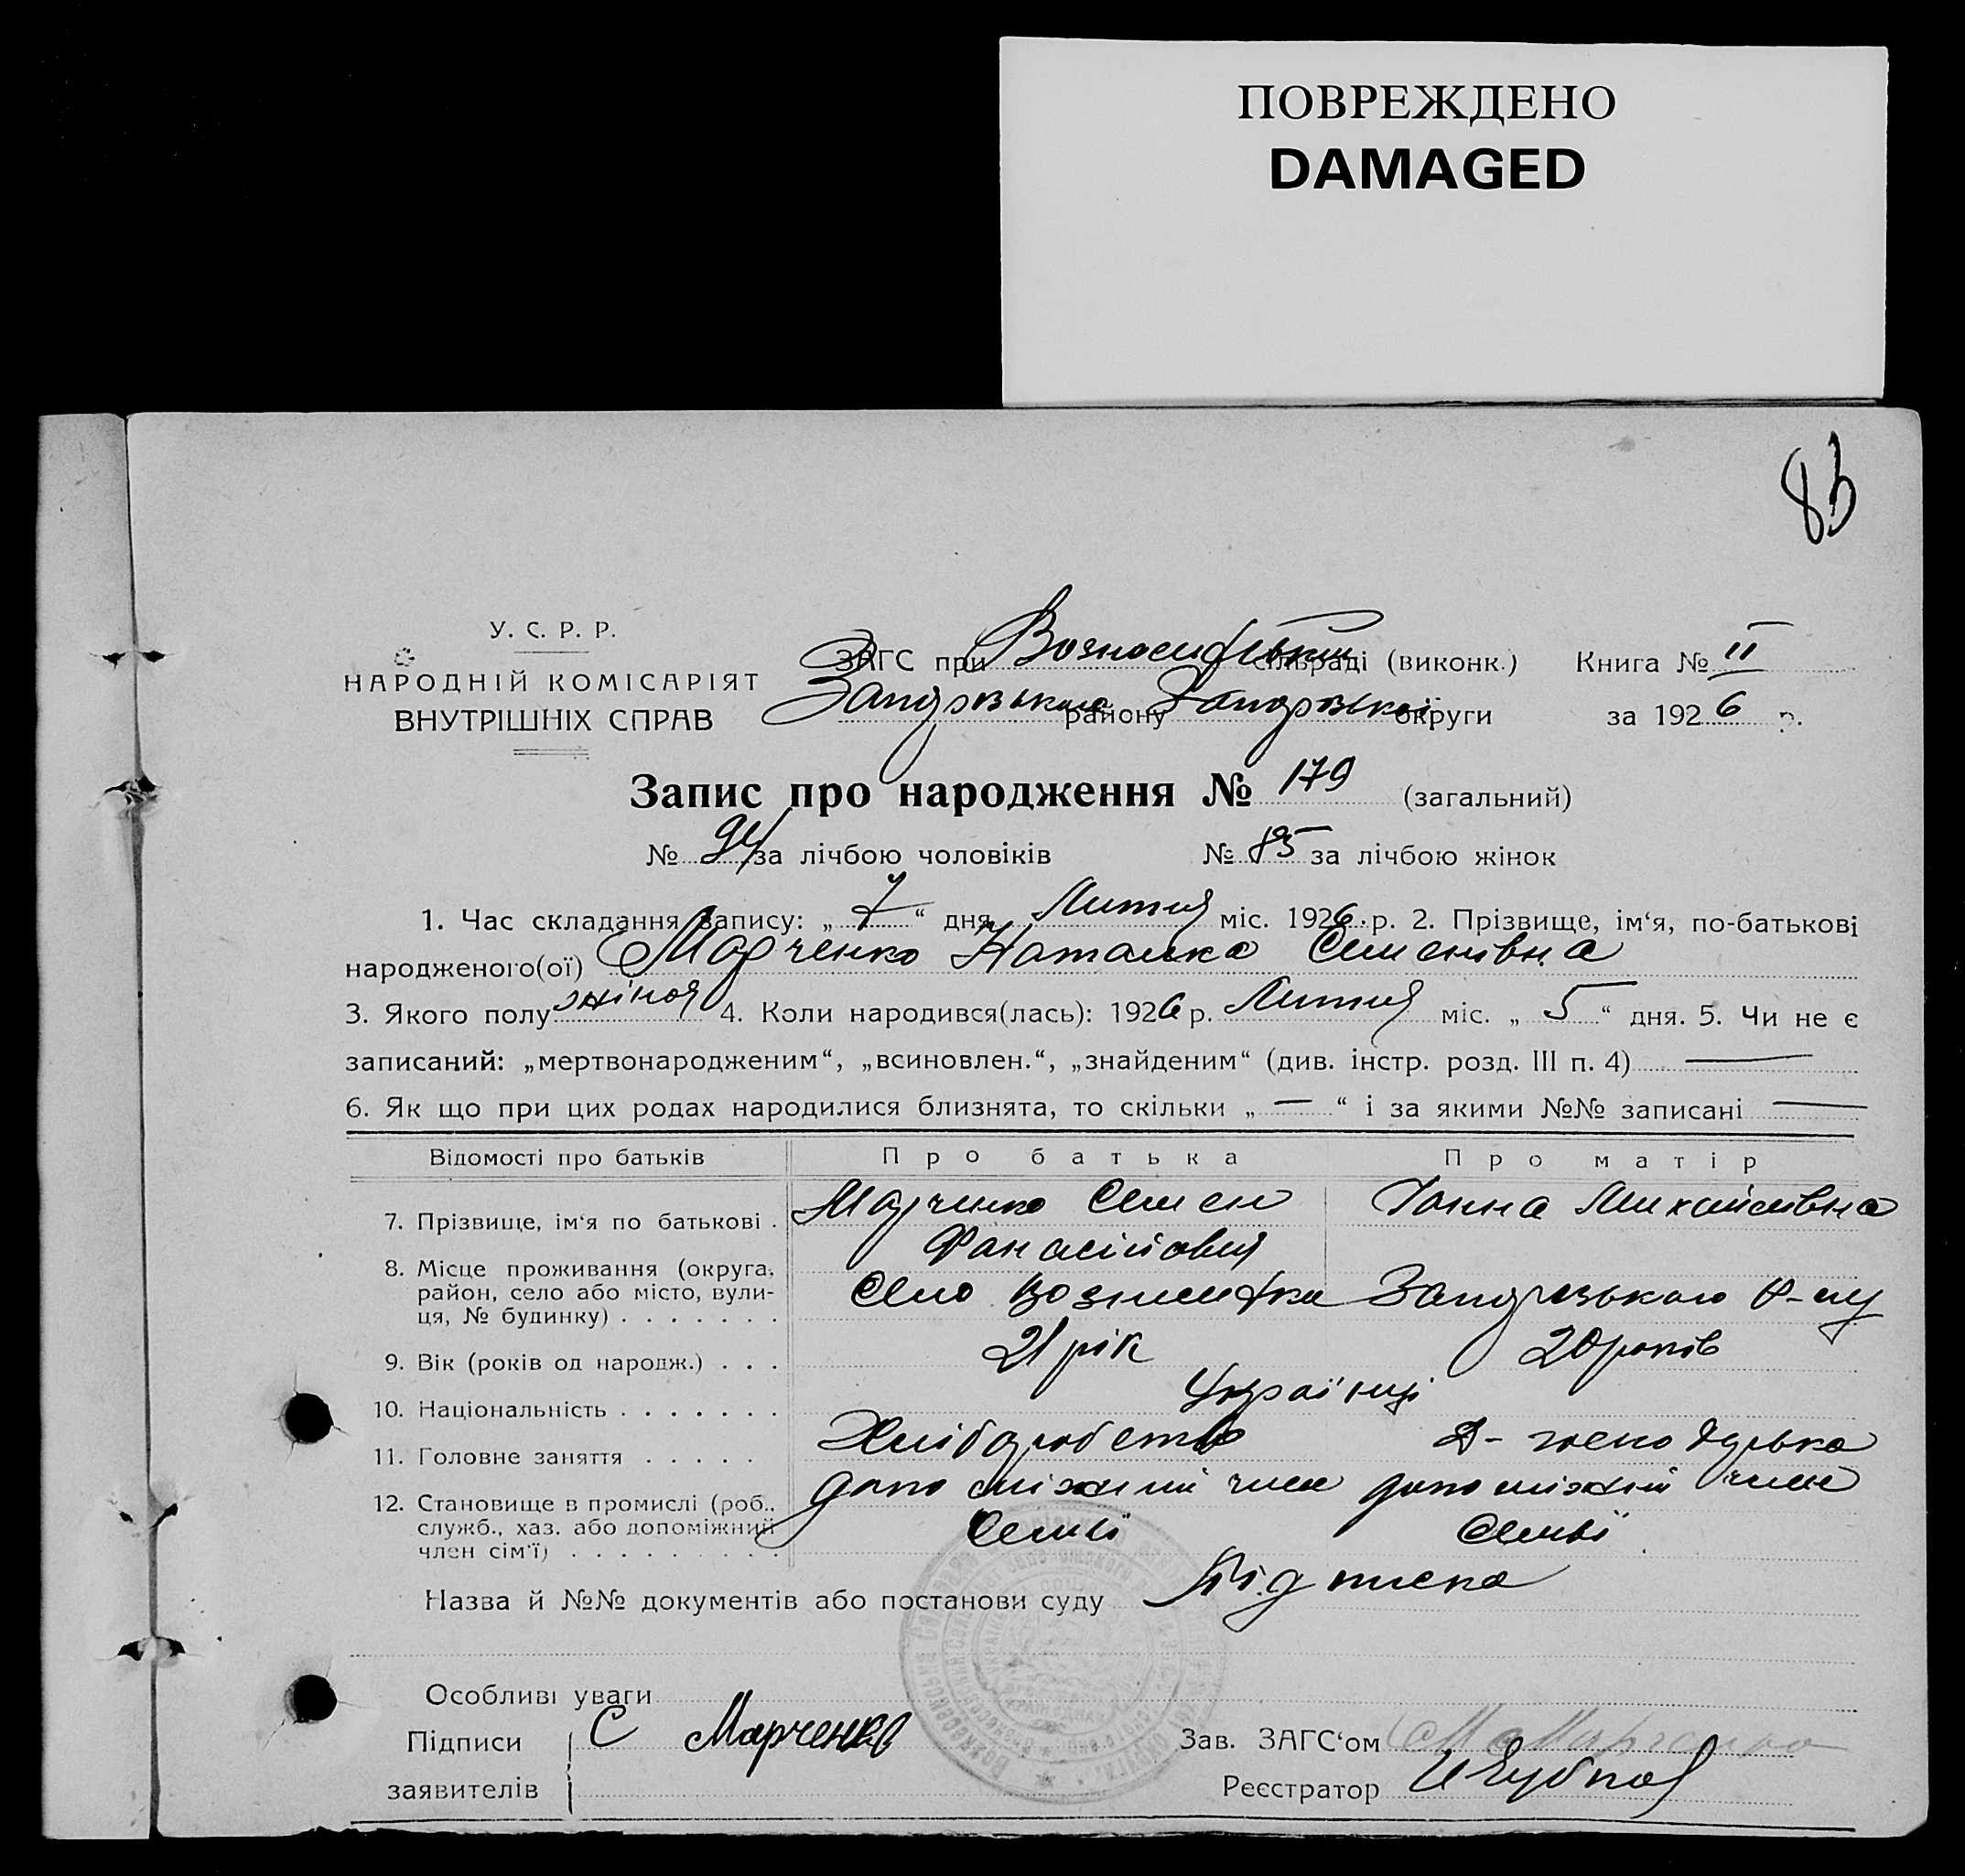 ПОВРЕЖДЕНО
DAMAGED
83
У. С. Р. Р.
НАРОДНІЙ КОМІСАРІЯТ
ВНУТРІШНІХ СПРАВ
ЗАГС при сільраді (виконк.) Книга № II
району округи за 1926 р.
Запис про народження № 179 (загальний)
№ 94 за лічбою чоловіків № 85 за лічбою жінок
1. Час складання запису: „ 7 “ дня Лютня міс. 1926 р. 2. Прізвище, ім‘я, по-батькові
народженого(ої) Марченко Наталка Семенівна
3. Якого полу жіноч 4. Коли народився(лась): 1926 р. Лютня міс. „ 5 “ дня. 5. Чи не є
записаний: „мертвонародженим“, „всиновлен.“, „знайденим“ (див. інстр. розд. III п. 4) —
6. Як що при цих родах народилися близнята, то скільки „ — “ і за якими №№ записані —
Відомості про батьків Про батька Про матір
7. Прізвище, ім‘я по батькові . Марченко Семен Ганна Михайлівна
8. Місце проживання (округа, район, село або місто, вулиця, № будинку) . . . . . . . Село Вознесенка Запорізького р-ну
9. Вік (років од народж.) . . . 21 рік 20 років
10. Національність . . . . . . . Українці
11. Головне заняття . . . . . Хліборобство
12. Становище в промислі (роб., служб., хаз. або допоміжний член сім‘ї) . . . . . . . . . допоміжний член семьї допоміжний член семьї
Назва й №№ документів або постанови суду Підписка
Особливі уваги
Підписи С Марченко Зав. ЗАГС‘ом Марченко
заявителів Реєстратор